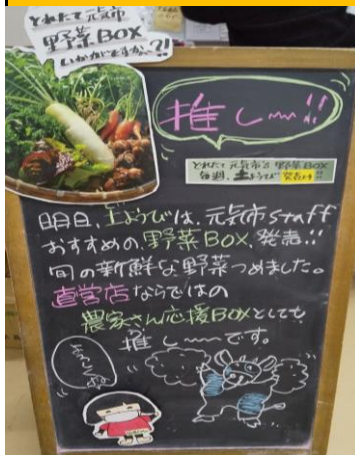 とれたて元気市
野菜BOX
いかがですか〜?!
推し〜〜!!
とれたて元気市の野菜BOX
毎週、土ようび発売より!!
明日、土ようびは、元気市staff
おすすめの、野菜BOX、発売!!
旬の新鮮な野菜つめました。
直営店ならではの
農家さん応援BOXとしても
推し〜〜です。